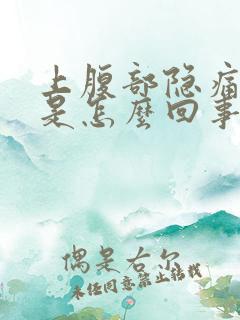 上腹部隐痛
是怎麼回事
偶是右尔
未任同意禁止转载